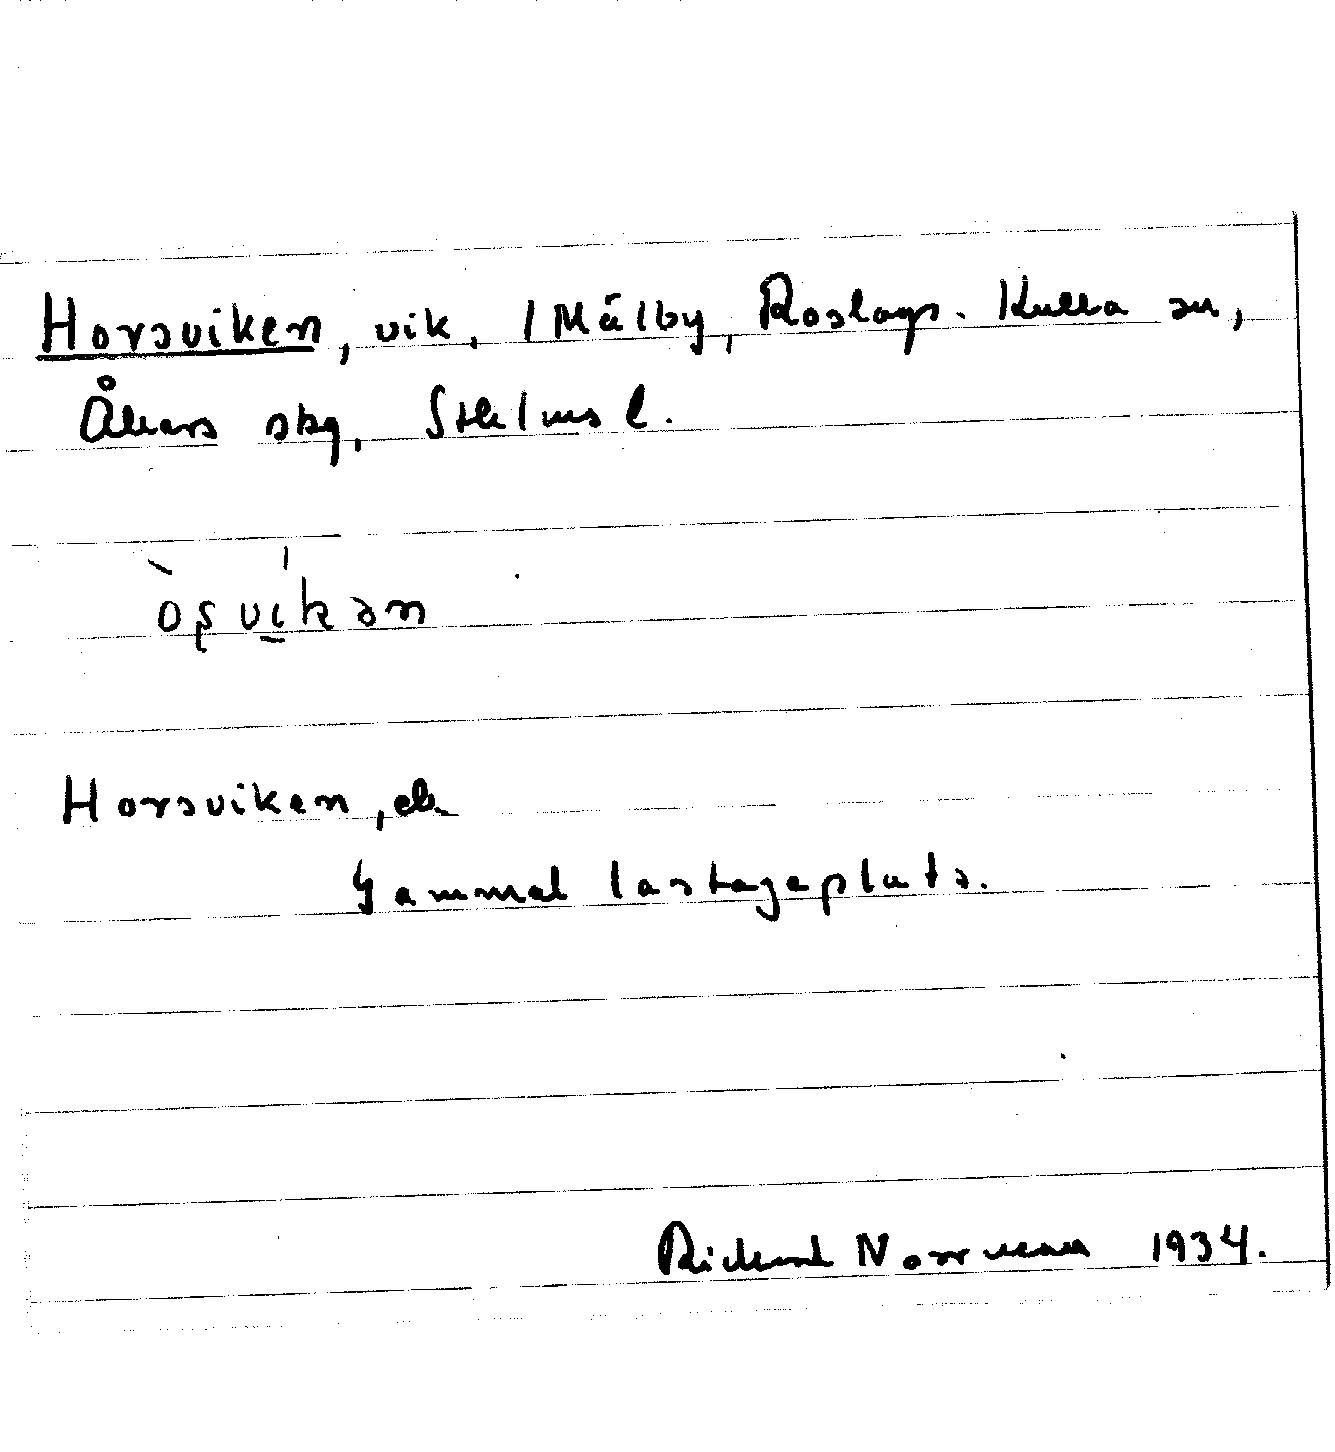 Horsviken, vik, 1 Mälby, Roslags-Kulla sn,
Åkers skg, Sthlms l.
òṣvíkən
Horsviken, ek.
Gammal lastageplats.
Rickard Norrman 1934.